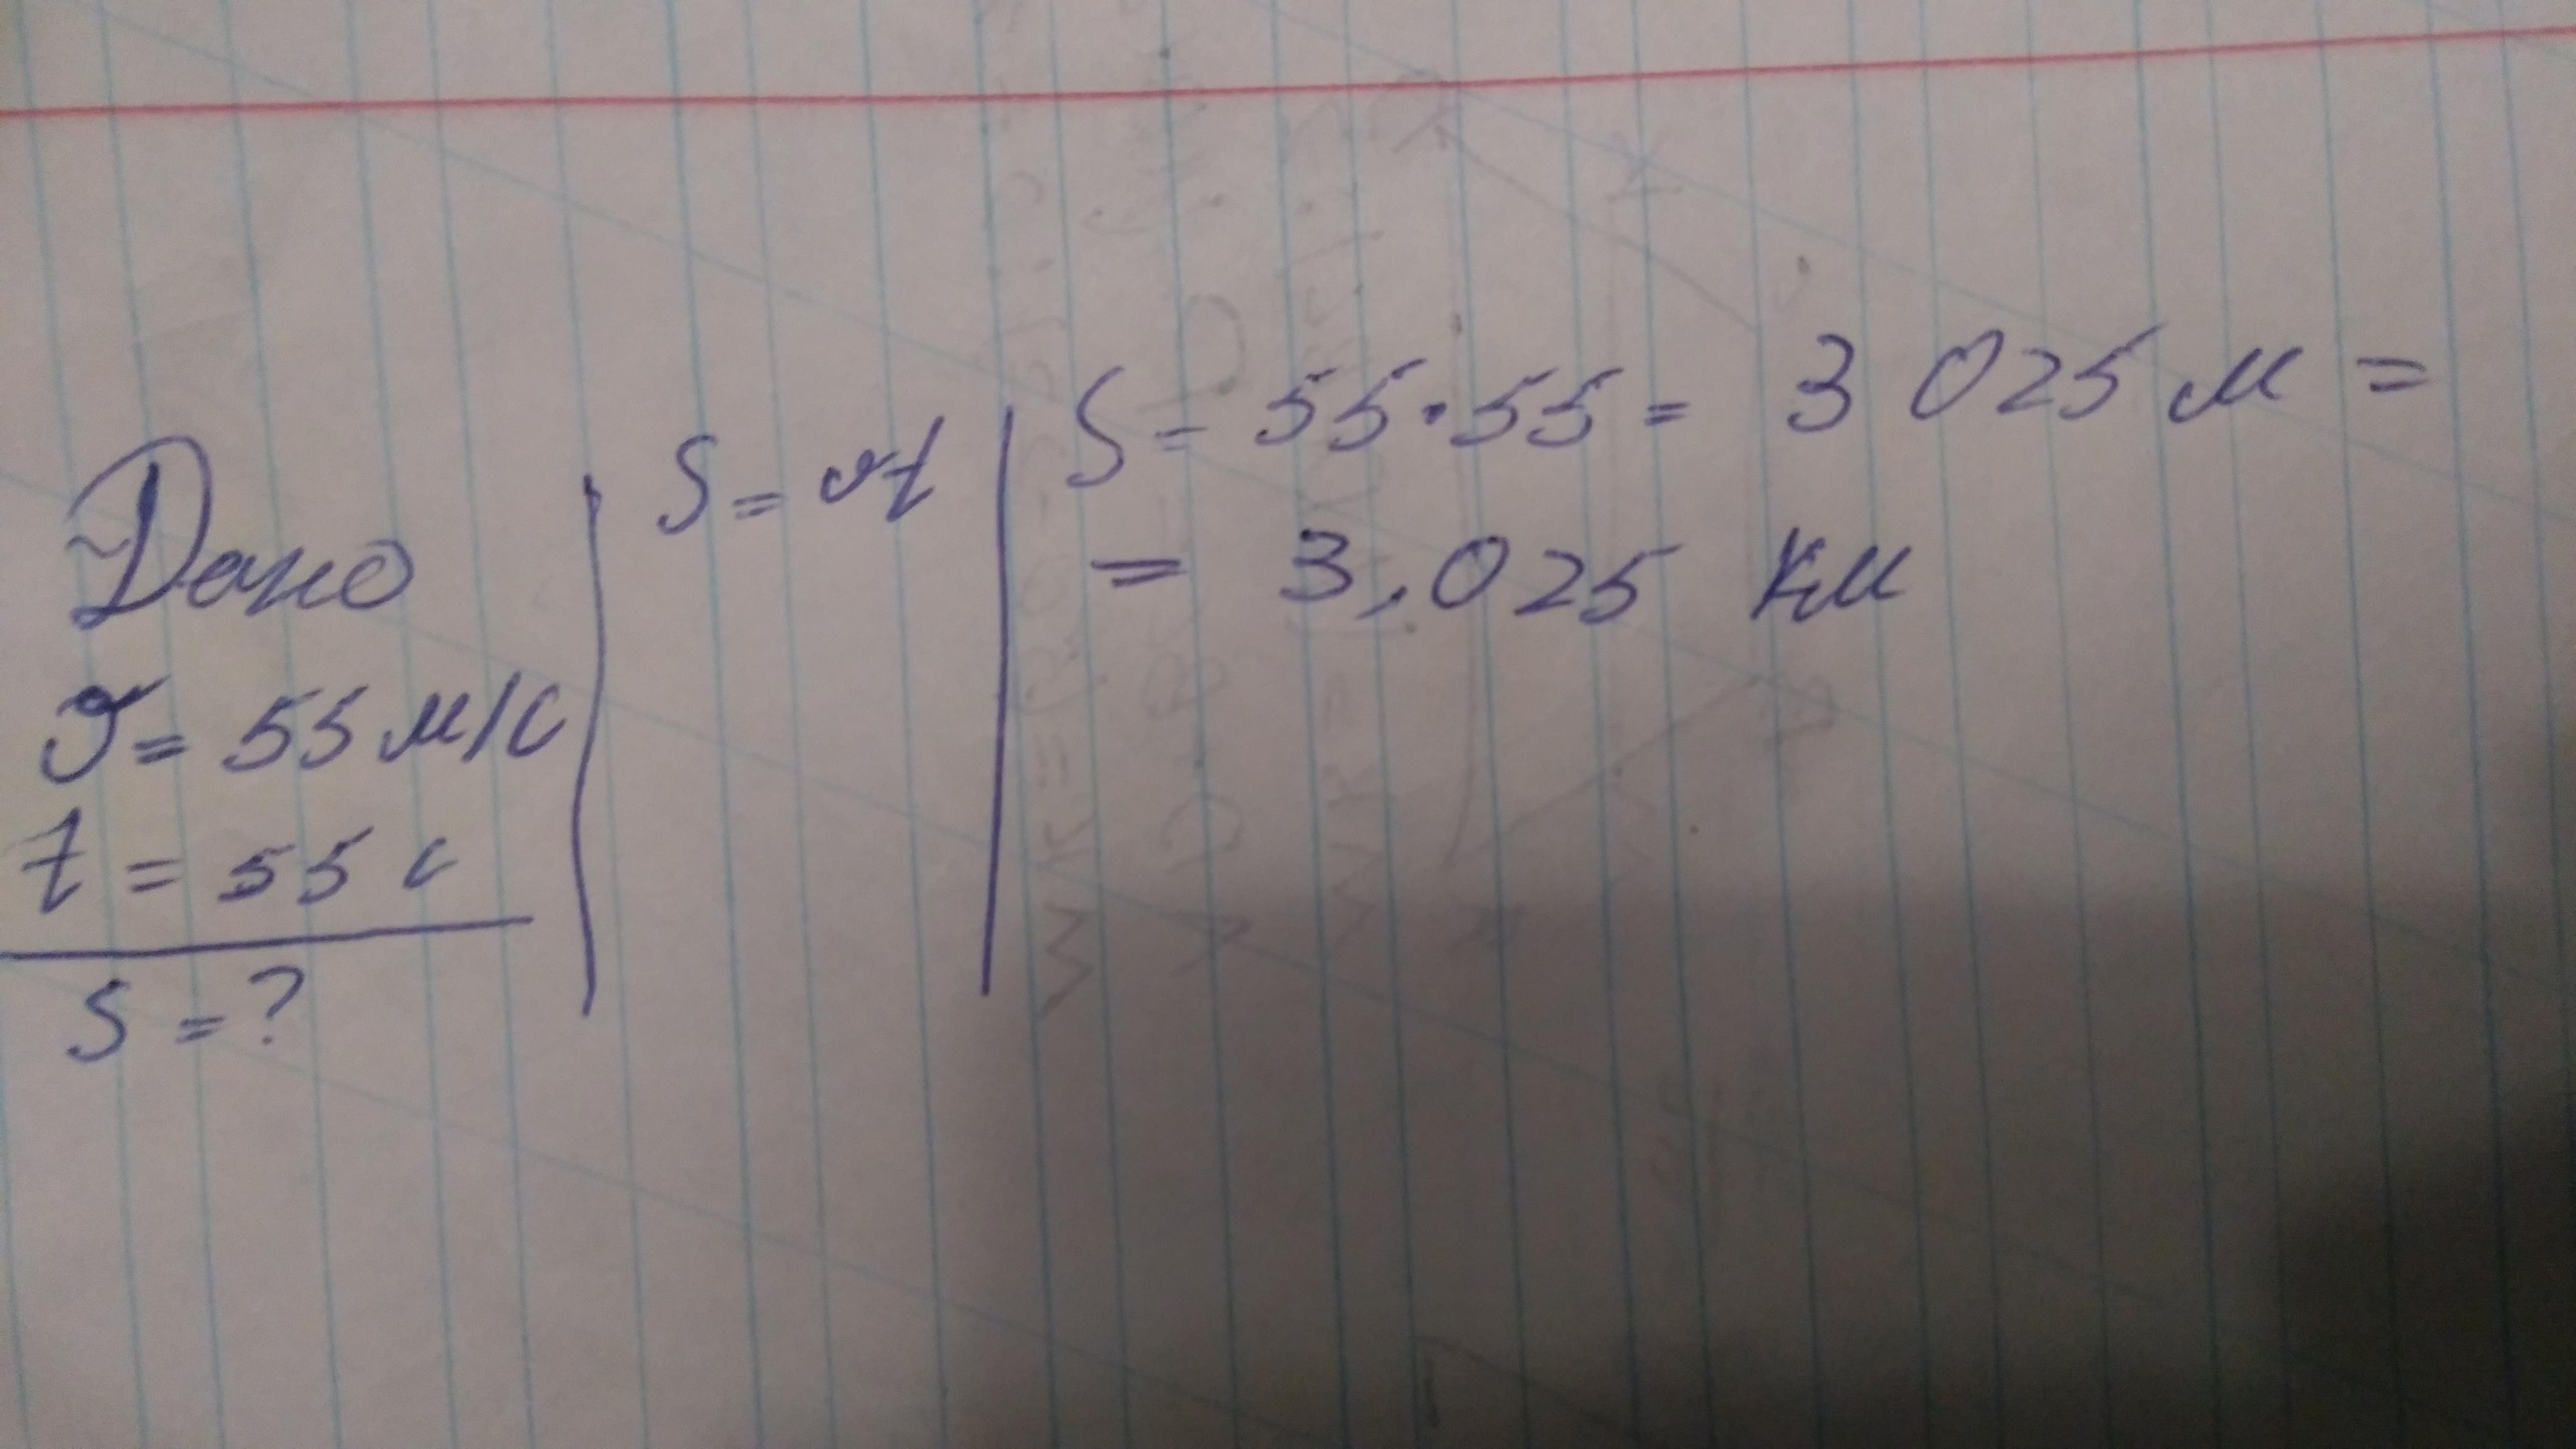 Дано
v = 55 м/с
t = 55 с
S = ?
S = vt
S = 55 · 55 = 3 025 м =
= 3,025 км